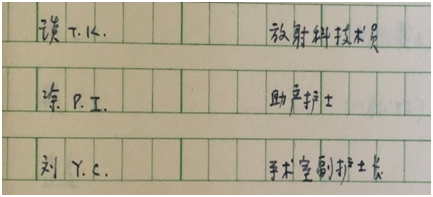 T.K. 放射科技术员
涂 P.I. 助产护士
刘 Y.C. 手术室副护士长